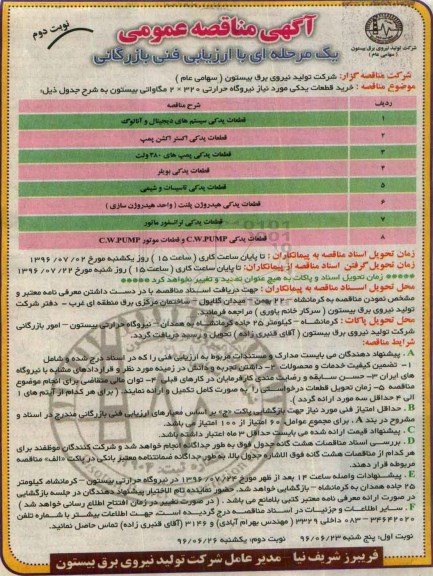 آگهی مناقصه عمومی
نوبت دوم
یک مرحله ای با ارزیابی فنی بازرگانی
شرکت تولید نیروی برق بیستون
(سهامی عام)
شرکت مناقصه گزار: شرکت تولید نیروی برق بیستون ( سهامی عام )
موضوع مناقصه : خرید قطعات یدکی مورد نیاز نیروگاه حرارتی ۳۲۰ × ۲ مگاواتی بیستون به شرح جدول ذیل:
ردیف شرح مناقصه
۱ قطعات یدکی سیستم های دیجیتال و آنالوگ
۲ قطعات یدکی اکستراکشن پمپ
۳ قطعات یدکی پمپ های ۳۸۰ ولت
۴ قطعات یدکی بویلر
۵ قطعات یدکی تاسیسات و شیمی
۶ قطعات یدکی هیدروژن پلنت ( واحد هیدروژن سازی )
۷ قطعات یدکی ترانسفورماتور
۸ قطعات یدکی C.W.PUMP و قطعات موتور C.W.PUMP
زمان تحویل اسناد مناقصه به پیمانکاران : تا پایان ساعت کاری ( ساعت ۱۵ ) روز یکشنبه مورخ ۱۳۹۶/۰۷/۰۲
زمان تحویل گرفتن اسناد مناقصه از پیمانکاران: تا پایان ساعت کاری ( ساعت ۱۵ ) روز شنبه مورخ ۱۳۹۶/۰۷/۲۲
***** زمان تحویل اسناد و پاکات به هیچ عنوان تمدید و تغییر نخواهد کرد *****
محل تحویل اسناد مناقصه به پیمانکاران: جهت دریافت اسناد مناقصه با در دست داشتن معرفی نامه معتبر و
مشخص نمودن مناقصه به کرمانشاه - ۲۲ بهمن - میدان گلایول - ساختمان مرکزی برق منطقه ای غرب - دفتر شرکت
تولید نیروی برق بیستون ( سرکار خانم یاوری ) مراجعه فرمایند.
محل تحویل پاکات : کرمانشاه - کیلومتر ۲۵ جاده کرمانشاه به همدان - نیروگاه حرارتی بیستون - امور بازرگانی
شرکت تولید نیروی برق بیستون ( آقای قنبری زاده ) تحویل و رسید دریافت گردد.
شرایط مناقصه:
A . پیشنهاد دهندگان می بایست مدارک و مستندات مربوط به ارزیابی فنی را که در اسناد درج شده و شامل
۱- تضمین کیفیت خدمات و محصولات ۲- داشتن تجربه و دانش در زمینه مورد نظر و قراردادهای مشابه با نیروگاه
های ایران ۳- حسن سابقه و رضایت مندی کارفرمایان در کارهای قبلی ۴- توان مالی متقاضی برای انجام موضوع
مناقصه ۵- زمان تحویل قطعات درخواستی را به صورت کامل تکمیل و ارائه نمایند. ( برای هر کدام از آیتم های ۱
الی ۴ حداقل سه مورد ارائه گردد )
B . حداقل امتیاز فنی مورد نیاز جهت بازگشایی پاکت «ج» بر اساس معیارهای ارزیابی فنی بازرگانی مندرج در اسناد و
مشروح در بند A برای مجموع عوامل، ۶۰ امتیاز از ۱۰۰ امتیاز می باشد.
C . پیشنهاد قیمت ارائه شده می بایست حداقل ۳ ماه اعتبار داشته باشد.
D . بررسی اسناد مناقصات هشت گانه جدول فوق به طور جداگانه انجام خواهد شد و شرکت کنندگان موظفند برای
هر کدام از مناقصات هشت گانه فوق الاشاره جدول بالا، به طور جداگانه ضمانتنامه معتبر بانکی در پاکت «الف» مناقصه
مربوطه قرار دهند.
E . پیشنهادات واصله ساعت ۱۴ بعد از ظهر مورخ ۱۳۹۶/۰۷/۲۴ در نیروگاه حرارتی بیستون - کرمانشاه، کیلومتر
۲۵ جاده همدان به کرمانشاه - بازگشایی خواهد شد. حضور نماینده تام الاختیار پیشنهاد دهندگان در جلسه بازگشایی
در صورت ارائه معرفی نامه معتبر کتبی بلامانع می باشد . ( در صورت تغییر در زمان افتتاح اطلاع رسانی خواهد شد )
F . سایر اطلاعات و جزئیات در اسناد مناقصه درج گردیده است. جهت اطلاعات بیشتر با شماره تلفن
۳۴۶۴۲۰۲۰ - ۰۸۳ داخلی ۳۳۲۹ ( مهندس بهرام آبادی ) و ۳۱۴۶ (آقای قنبری زاده) تماس حاصل نمائید.
نوبت اول: پنج شنبه ۹۶/۰۶/۲۳ نوبت دوم: یکشنبه ۹۶/۰۶/۲۶
فریبرز شریف نیا - مدیر عامل شرکت تولید نیروی برق بیستون